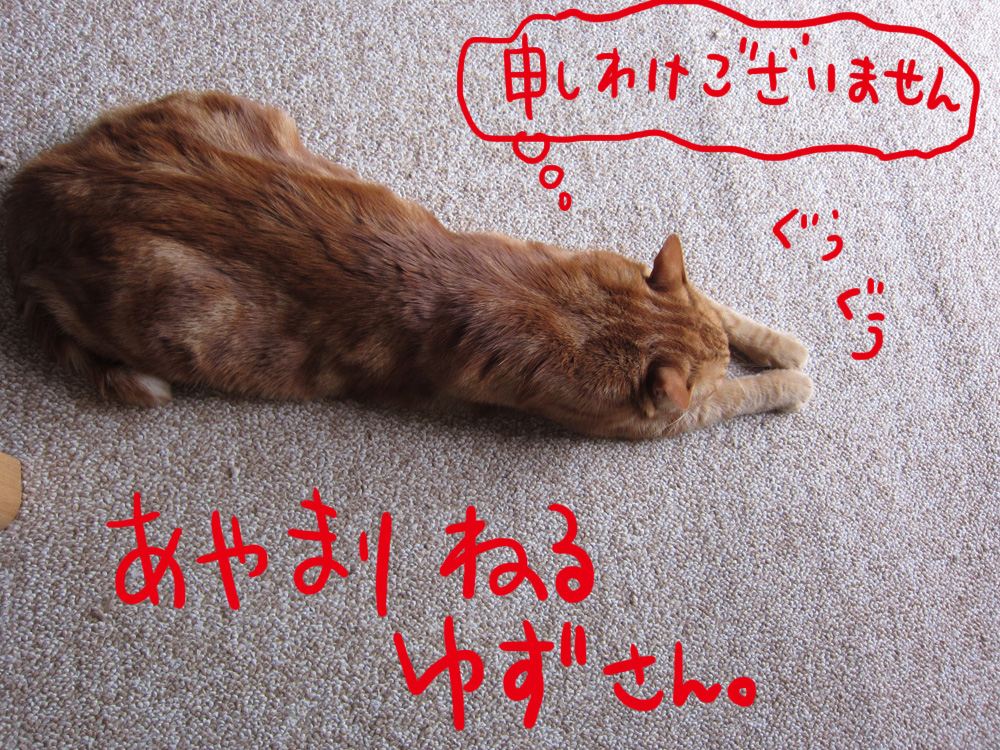 申しわけございません
ぐぅ
ぐぅ
あやまり ねる
ゆずさん。